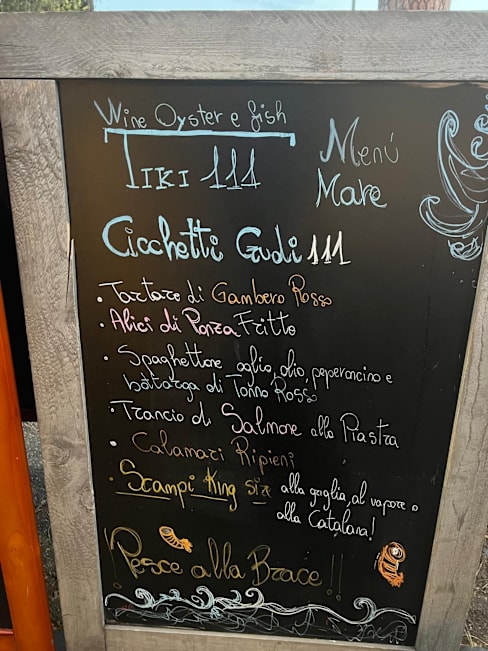 Wine Oyster e fish
TIKI 111
Menú
Mare
Cicchetti Gudi 111
• Tartare di Gambero Rosso
• Alici di Ponza Fritte
• Spaghettone aglio, olio, peperoncino e
bottarga di Tonno Rosso
• Trancio di Salmone alla Piastra
• Calamari Ripieni
• Scampi King Size alla griglia, al vapore o
alla Catalana!
Pesce alla Brace!!